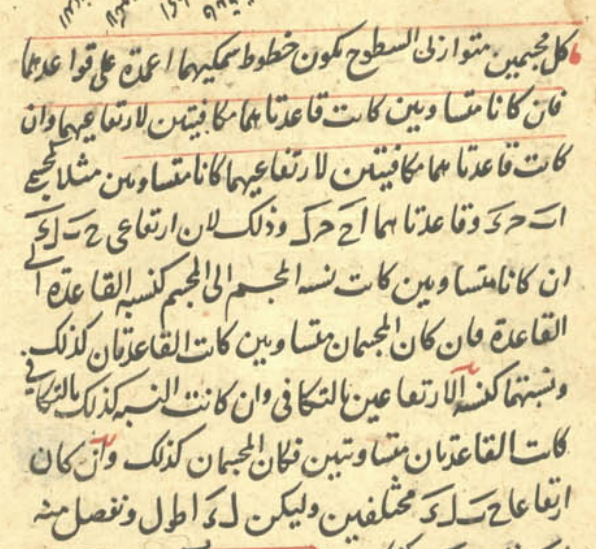 كل مجسمين متوازيى السطوح يكون خطوط سمكيهما اعمدة على قواعدهما
فان كانا متساويين كانت قاعدتاهما مكافيتين لارتفاعيهما وان
كانت قاعدتاهما مكافيتين لارتفاعيهما كانا متساويين مثلا مجسمى
وقاعدتاهما وذلك لان ارتفاعى
ان كانا متساويين كانت نسبة المجسم الى المجسم كنسبة القاعدة الى
القاعدة فان كان المجسمان متساويين كانت القاعدتان كذلك
ونسبتهما كنسبة الارتفاعين بالتكافى وان كانت النسبة كذلك بالتكافى
كانت القاعدتان متساويتين فكان المجسمان كذلك وان كان
ارتفاعا مختلفين وليكن اطول ونفصل منه